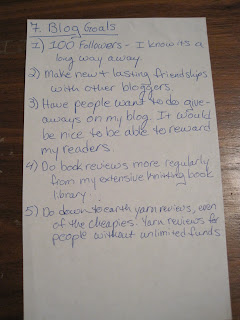 7. Blog Goals
1) 100 Followers - I know its a
long way away.
2) Make new & lasting friendships
with other bloggers.
3) Have people want to do give-
aways on my blog. It would
be nice to be able to reward
my readers.
4) Do book reviews more regularly
from my extensive knitting book
library.
5) Do down to earth yarn reviews, even
of the cheapies. Yarn reviews for
people without unlimited funds